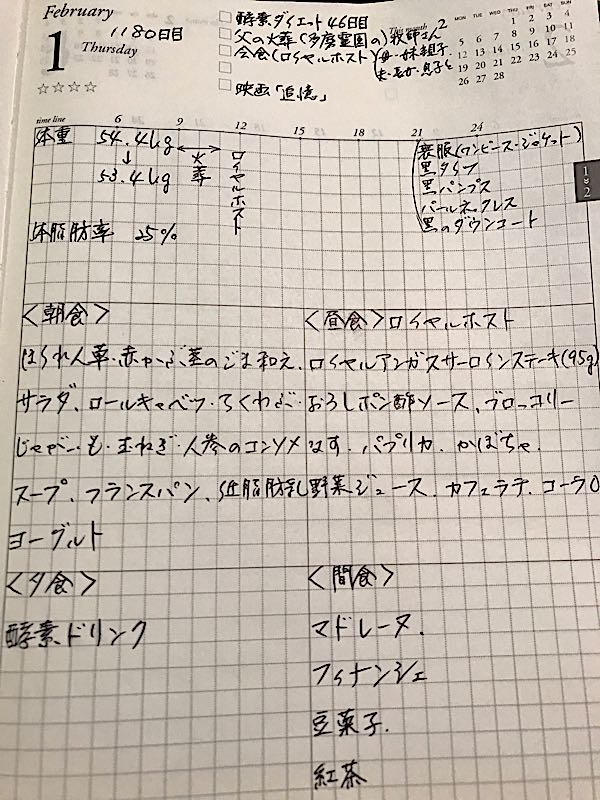 February
1 Thursday
1180日目
☆☆☆☆
酵素ダイエット46日目
父の火葬(多磨霊園の)牧師さん
会食(ロイヤルホスト)
母・妹親子
夫・長女・息子と
映画「追憶」
This month 2
MON TUE WED THU FRI SAT SUN
1 2 3 4
5 6 7 8 9 10 11
12 13 14 15 16 17 18
19 20 21 22 23 24 25
26 27 28
time line 6 9 12 15 18 21 24
体重 54.4kg
↓
53.4kg
火葬
ロイヤルホスト
体脂肪率 25%
喪服(ワンピース・ジャケット)
黒タイツ
黒パンプス
パールネックレス
黒のダウンコート
1
2
<朝食>
ほうれん草・赤かぶ茎のごま和え、
サラダ、ロールキャベツ・ちくわぶ・
じゃがいも・玉ねぎ・人参のコンソメ
スープ、フランスパン、低脂肪乳
ヨーグルト
<昼食>ロイヤルホスト
ロイヤルアンガスサーロインステーキ(95g)
おろしポン酢ソース、ブロッコリー
なす、パプリカ、かぼちゃ、
野菜ジュース、カフェラテ、コーラ0
<夕食>
酵素ドリンク
<間食>
マドレーヌ、
フィナンシェ
豆菓子、
紅茶